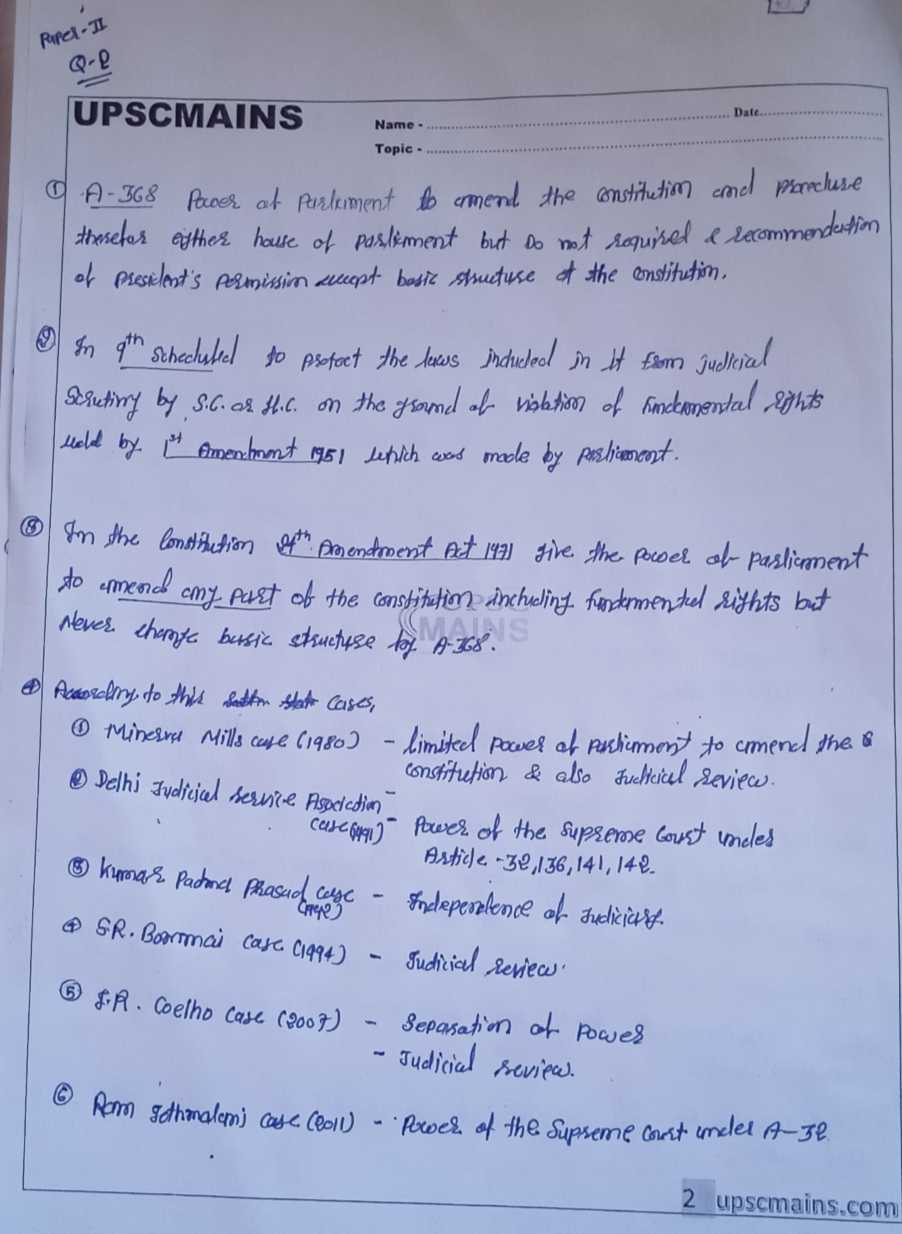 Paper-II
Q-2
UPSCMAINS
Name - Date
Topic -
① A-368 Power of Parliament to amend the constitution and procedure
therefor eyther house of parliment but Do not required & recommendation
of president's permission except basic structure of the constitution.
② In 9th scheduled to protect the laws included in it from judicial
Scrutiny by S.C. or H.C. on the ground of violation of fundamental rights
by 1st Amendment 1951 which was made by parliament.
③ In the Constitution 24th Amendment Act 1971 give the power of parliament
to amend any part of the constitution including fundermental rights but
Never change basic structure by A-368.
UPSC
MAINS
④ According to this cases,
① Minerva Mills case (1980) - limited power of parliament to amend the
constitution & also Judicial Review.
② Delhi Judicial Service Association
case (1991) - Power of the Supreme Court under
Article - 32, 136, 141, 142.
③ Kumar Padma Phasad case
(1992) - Independence of Judiciary.
④ S.R. Boommai case (1994) - Judicial Review.
⑤ I.R. Coelho Case (2007) - Separation of Power
- Judicial review.
⑥ Ram Jethmalani case (2011) - Power of the Supreme Court under A-32
2 upscmains.com